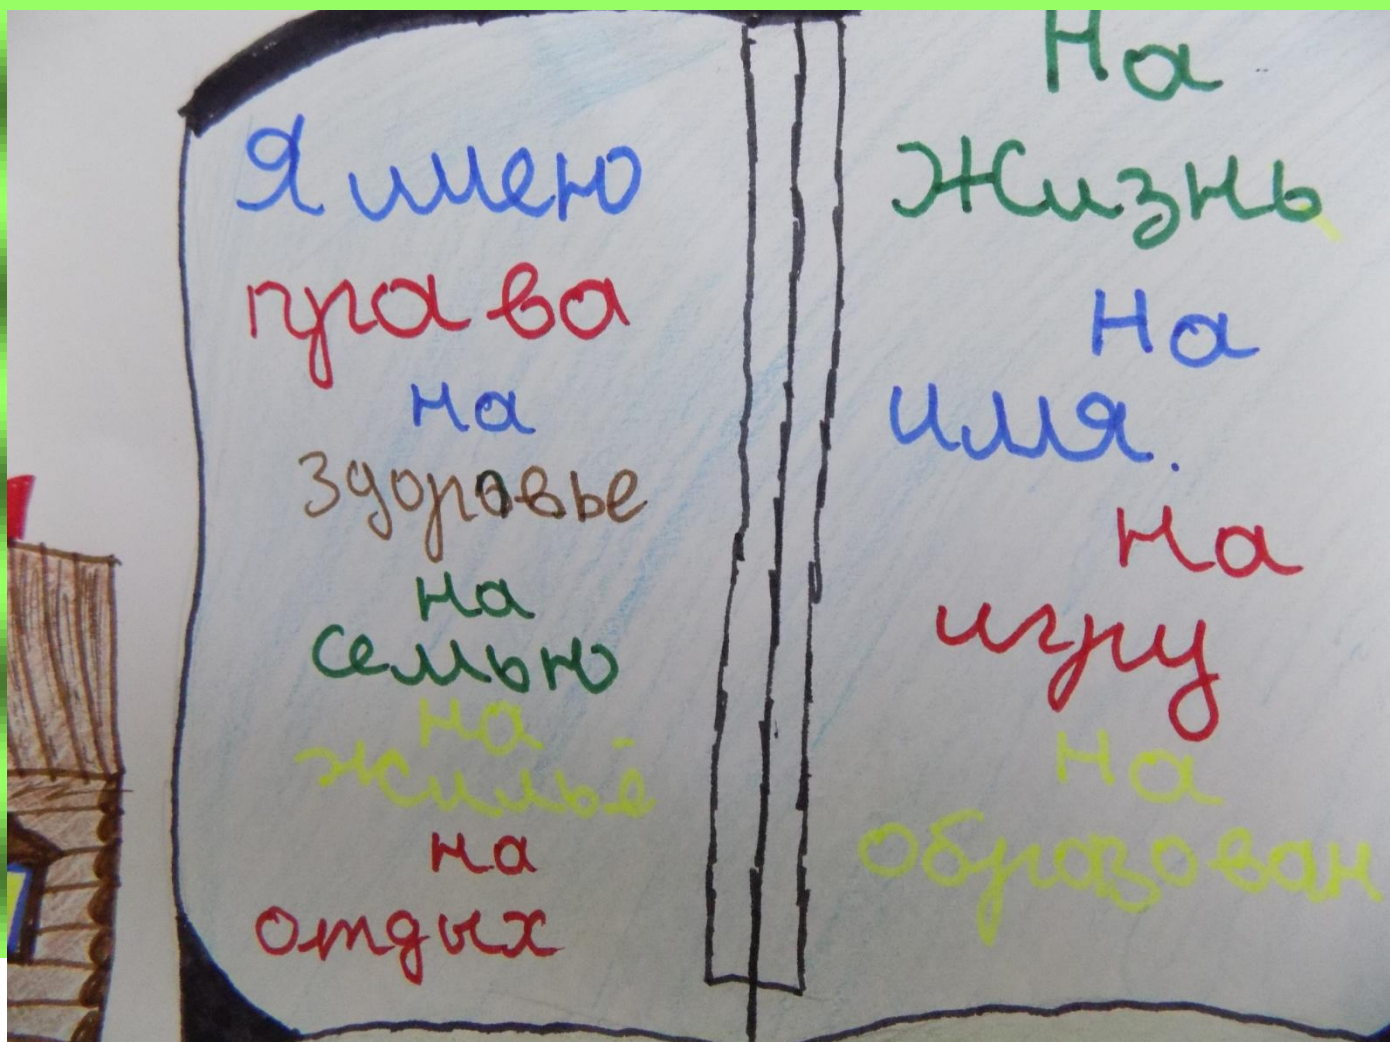 Я имею
права
на
здоровье
на
семью
на
жильё
на
отдых
На
Жизнь
На
имя.
На
игру
На
образован